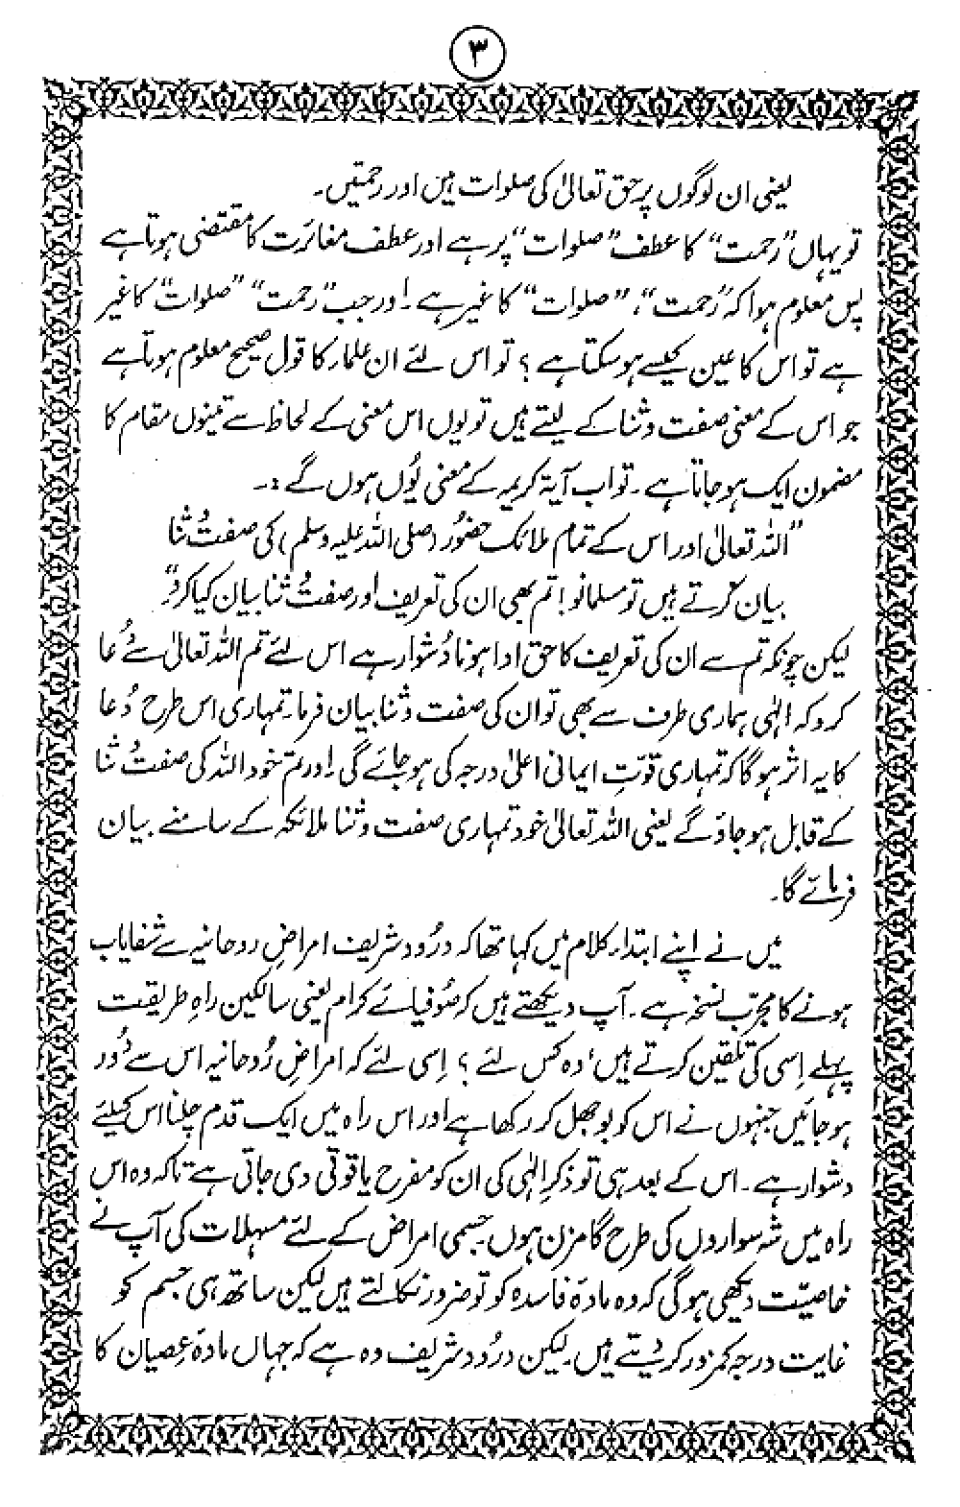 ۳
یعنی ان لوگوں پر حق تعالیٰ کی صلوات ہیں اور رحمتیں۔
تو یہاں ”رحمت“ کا عطف ”صلوات“ پر ہے اور عطف مغائرت کا مقتضی ہوتا ہے
پس معلوم ہوا کہ ”رحمت“، ”صلوات“ کا غیر ہے۔ اور جب ”رحمت“ ”صلوات“ کا غیر
ہے تو اس کا عین کیسے ہو سکتا ہے؟ تو اس لئے ان علمار کا قول صحیح معلوم ہوتا ہے
جو اس کے معنی صفت و ثنا کے لیتے ہیں تو یوں اس معنی کے لحاظ سے تینوں مقام کا
مضمون ایک ہو جاتا ہے۔ تو اب آیۃ کریمہ کے معنی یُوں ہوں گے :۔
”اللہ تعالیٰ اور اس کے تمام ملائک حضُور (صلی اللہ علیہ وسلم) کی صفت و ثنا
بیان کرتے ہیں تو مسلمانو! تم بھی ان کی تعریف اور صفت و ثنا بیان کیا کرو“
لیکن چونکہ تم سے ان کی تعریف کا حق ادا ہونا دُشوار ہے اس لئے تم اللہ تعالیٰ سے دُعا
کرو کہ الٰہی ہماری طرف سے بھی تو ان کی صفت و ثنا بیان فرما۔ تمہاری اس طرح دُعا
کا یہ اثر ہو گا کہ تمہاری قوّتِ ایمانی اعلیٰ درجہ کی ہو جائے گی اور تم خود اللہ کی صفت و ثنا
کے قابل ہو جاؤ گے یعنی اللہ تعالیٰ خود تمہاری صفت و ثنا ملائکہ کے سامنے بیان
فرمائے گا۔
میں نے اپنے ابتدار کلام میں کہا تھا کہ درُود شریف امراضِ روحانیہ سے شفایاب
ہونے کا مجرّب نسخہ ہے۔ آپ دیکھتے ہیں کہ صُوفیائے کرام یعنی سالکین راہِ طریقت
پہلے اِسی کی تلقین کرتے ہیں، وہ کس لئے؟ اِسی لئے کہ امراضِ رُوحانیہ اس سے دُور
ہو جائیں جنہوں نے اس کو بوجھل کر رکھا ہے اور اس راہ میں ایک قدم چلنا اس کیلئے
دشوار ہے۔ اس کے بعد ہی تو ذکرِ الٰہی کی ان کو مفرح یاقوتی دی جاتی ہے تاکہ وہ اس
راہ میں شہ سواروں کی طرح گامزن ہوں جسمی امراض کے لئے مسہلات کی آپ نے
خاصیّت دیکھی ہو گی کہ وہ مادۂ فاسدہ کو تو ضرور نکالتے ہیں لیکن ساتھ ہی جسم کو
غایت درجہ کمزور کر دیتے ہیں۔ لیکن درُود شریف وہ ہے کہ جہاں مادۂ عِصیان کا